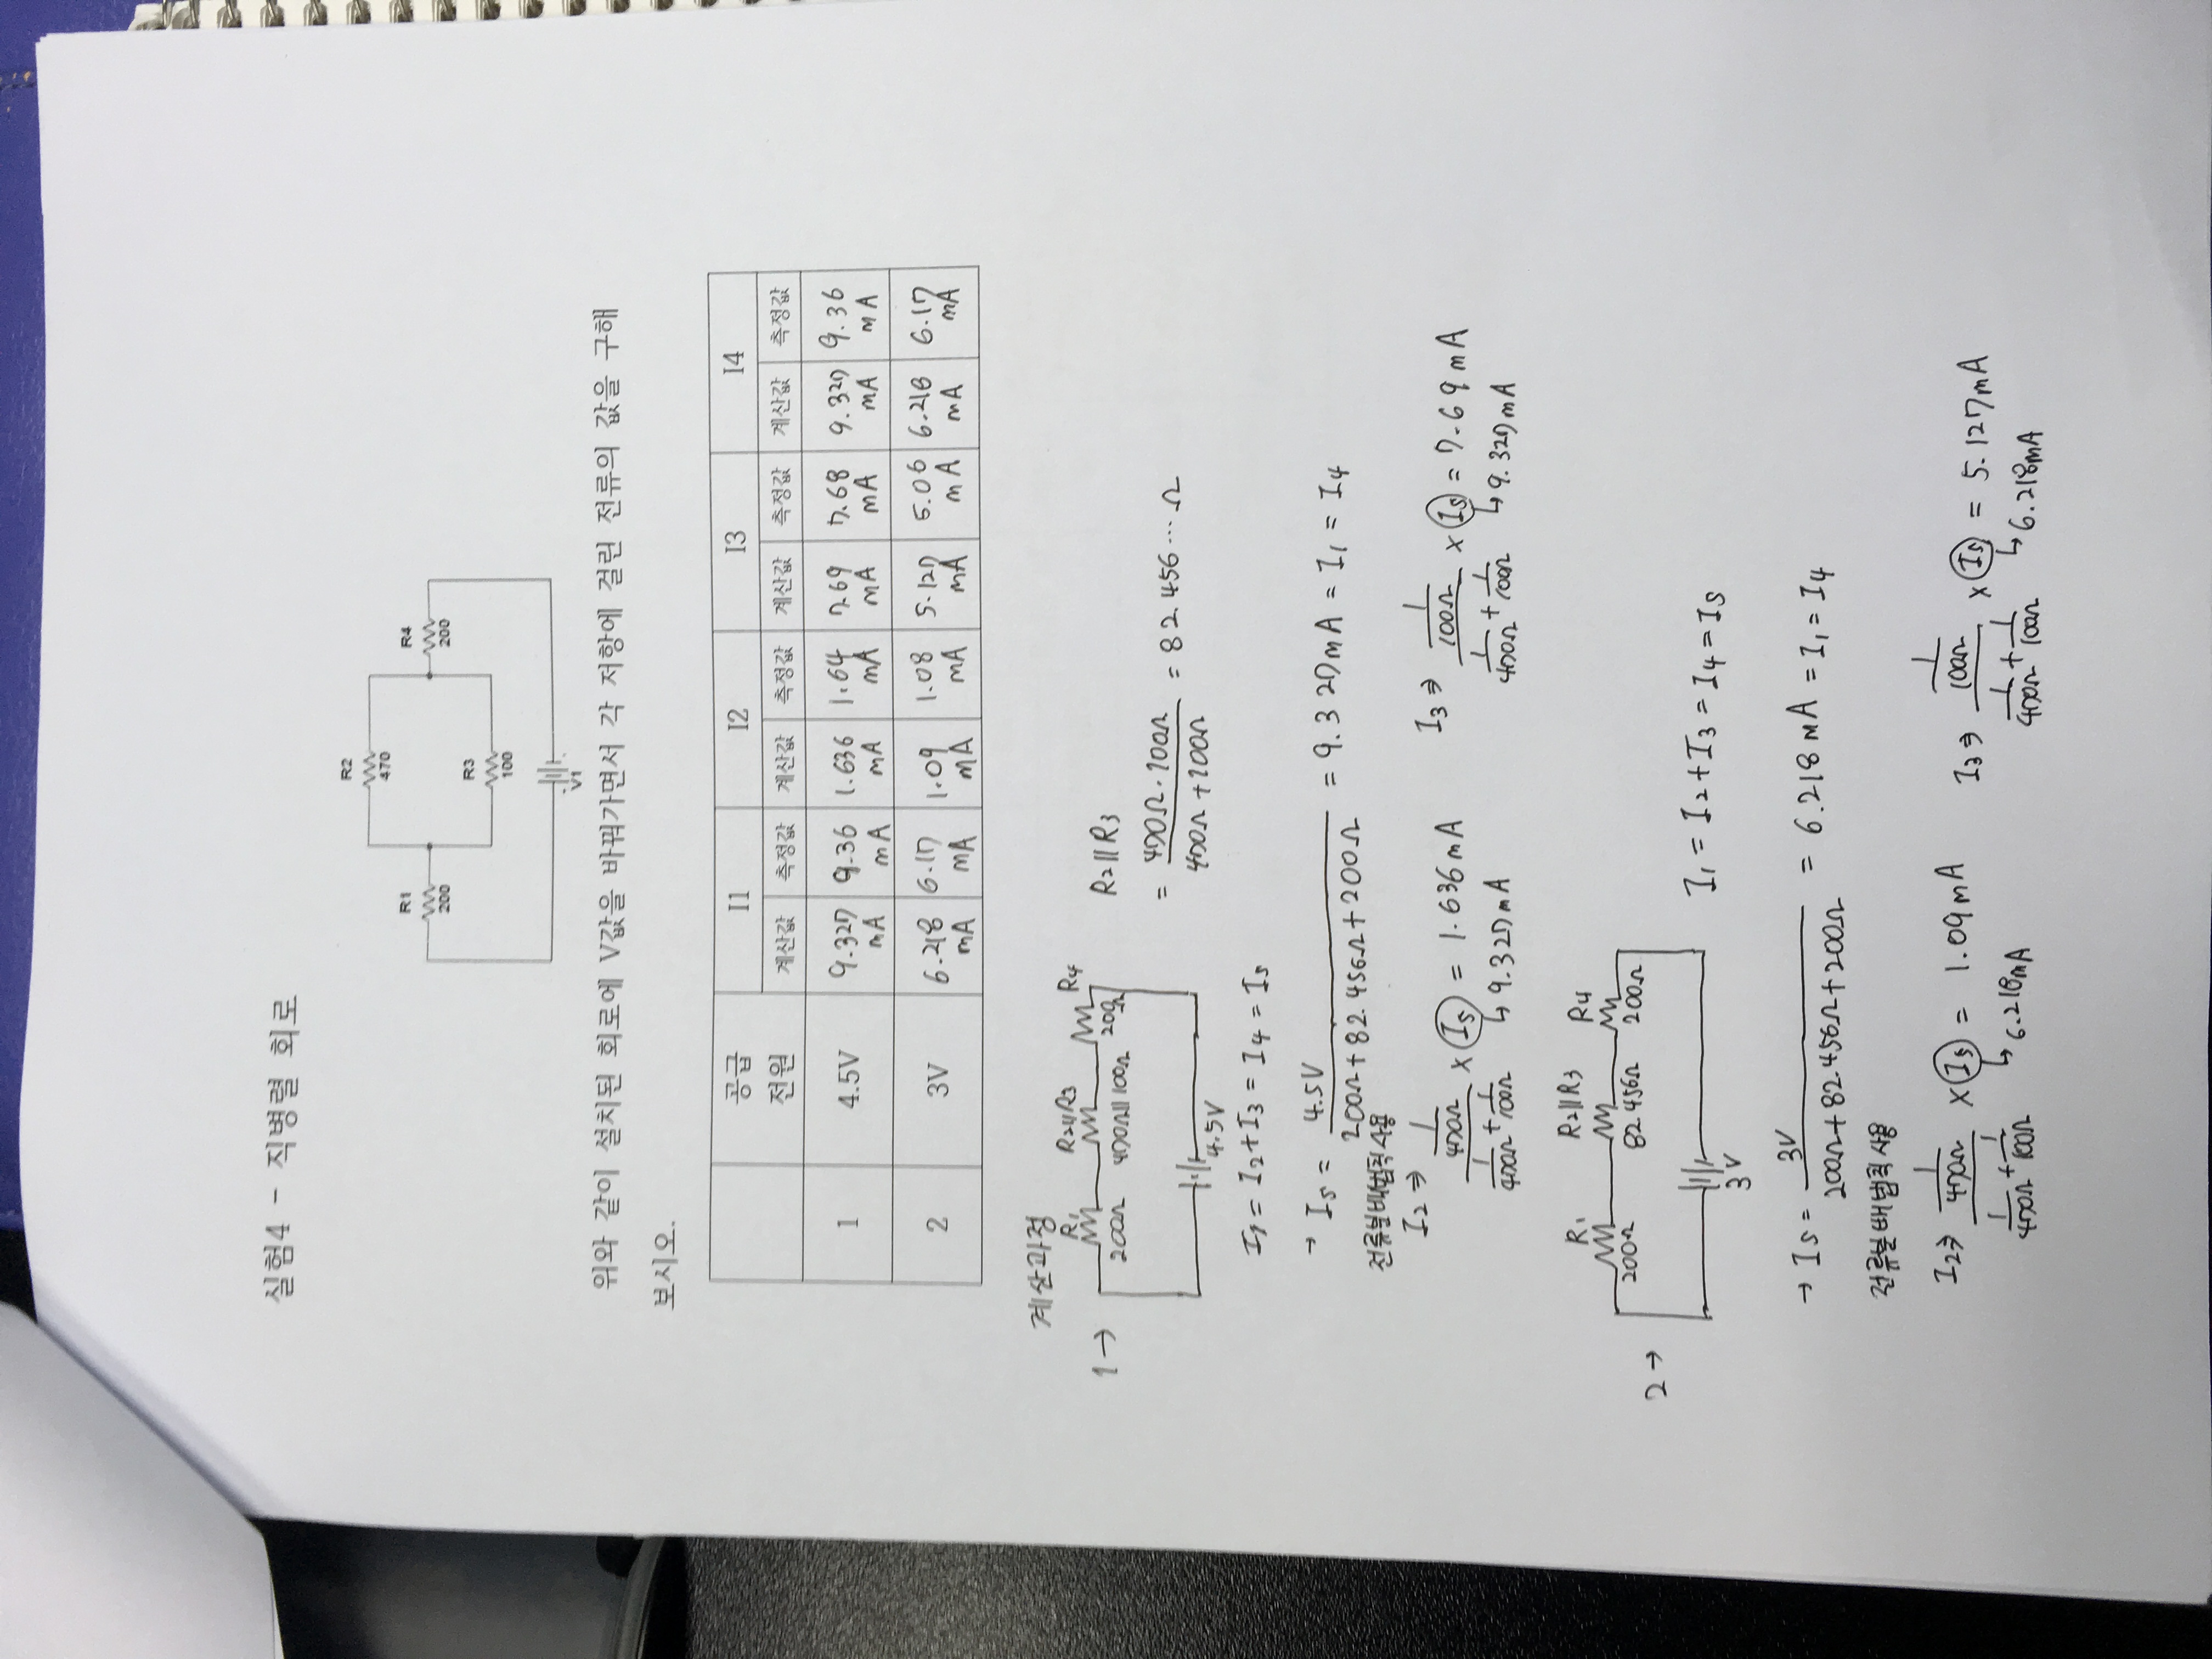 실험4 - 직병렬 회로
R2
470
R1
200
R4
200
R3
100
V1
위와 같이 설치된 회로에 V값을 바꿔가면서 각 저항에 걸린 전류의 값을 구해
보시오.
공급 전원 I1 I2 I3 I4
계산값 측정값 계산값 측정값 계산값 측정값 계산값 측정값
1 4.5V 9.327 mA 9.36 mA 1.636 mA 1.64 mA 7.69 mA 7.68 mA 9.327 mA 9.36 mA
2 3V 6.218 mA 6.17 mA 1.09 mA 1.08 mA 5.127 mA 5.06 mA 6.218 mA 6.17 mA
계산과정
1→ R1 R2||R3 R4
200Ω 470Ω||100Ω 200Ω
4.5V
R2||R3
= 470Ω·100Ω / 470Ω+100Ω = 82.456··· Ω
I1 = I2+I3 = I4 = Is
→ Is = 4.5V / 200Ω+82.456Ω+200Ω = 9.327mA = I1 = I4
전류분배법칙사용
I2 ⇒ 1/470Ω / 1/470Ω + 1/100Ω × Is = 1.636mA
↳ 9.327mA
I3 ⇒ 1/100Ω / 1/470Ω + 1/100Ω × Is = 7.69mA
↳ 9.327mA
2→ R1 R2||R3 R4
200Ω 82.456Ω 200Ω
3V
I1 = I2+I3 = I4 = Is
→ Is = 3V / 200Ω+82.456Ω+200Ω = 6.218mA = I1 = I4
전류분배법칙사용
I2 ⇒ 1/470Ω / 1/470Ω + 1/100Ω × Is = 1.09mA
↳ 6.218mA
I3 ⇒ 1/100Ω / 1/470Ω + 1/100Ω × Is = 5.127mA
↳ 6.218mA